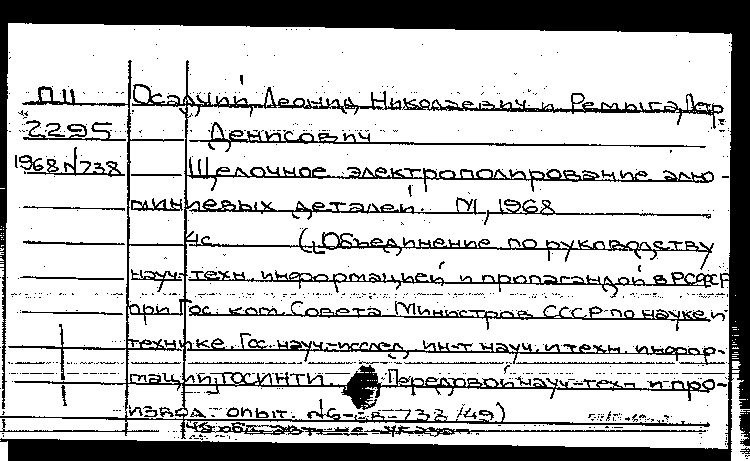 П11 Осадчий, Леонид Николаевич и Ремыга, Петр
2295 Денисович
1968 N738 Щелочное электрополирование алю-
миниевых деталей. М, 1968
4с. (Объединение по руководству
науч-техн. информацией и пропагандой в РСФСР
при Гос. ком. Совета Министров СССР по науке и
технике. Гос. науч-исслед. ин-т науч. и техн. инфор-
мации, ГОСИНТИ. Передовой науч-техн. и про-
извод. опыт. N 738/49)